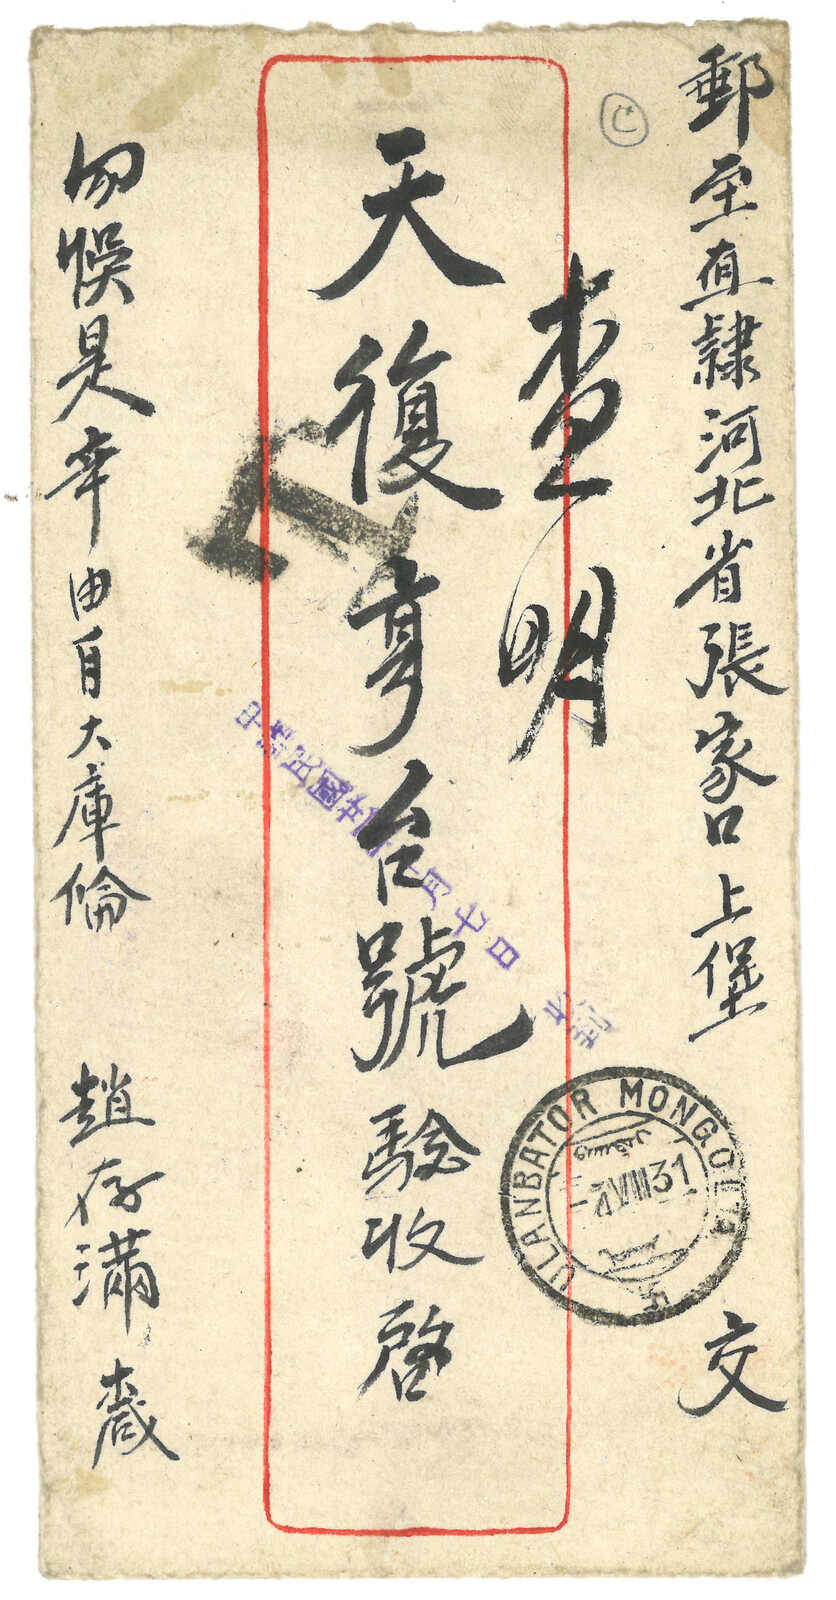 郵至直隸河北省張家口上堡 交
查明
天復亨台號驗收啓
勿悞是幸由自大庫倫 趙存滿
中華民國 月七日
ULANBATOR MONGOLIA
VIII 31
C